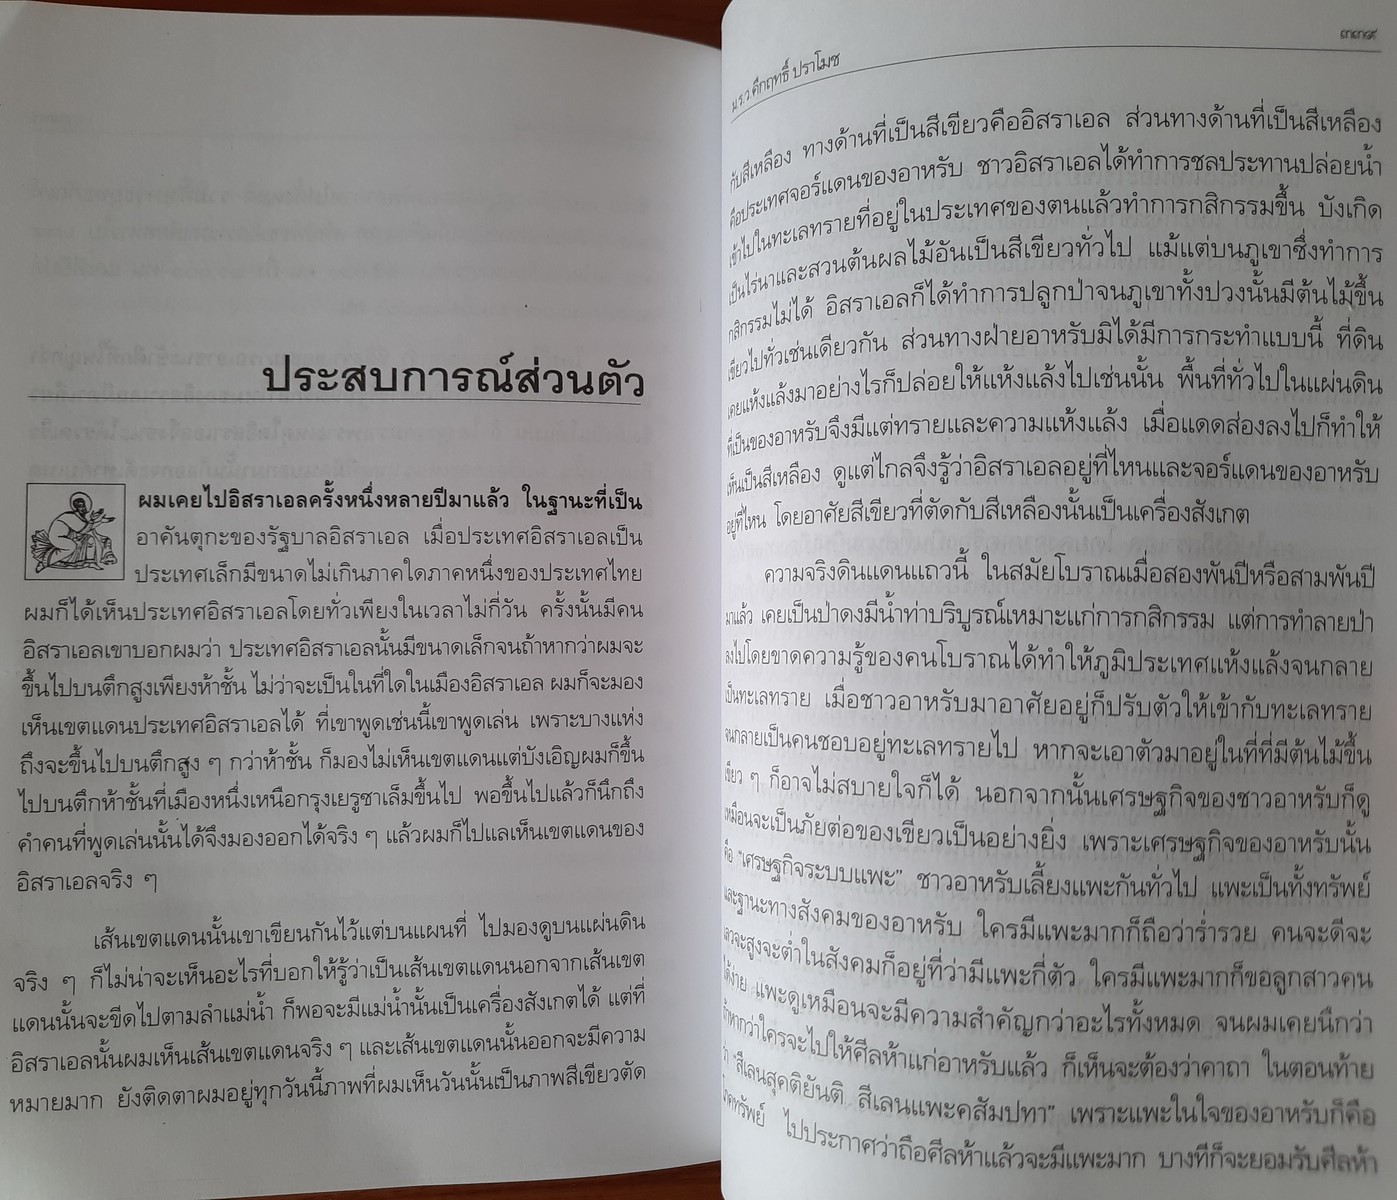 ประสบการณ์ส่วนตัว
ผมเคยไปอิสราเอลครั้งหนึ่งหลายปีมาแล้ว ในฐานะที่เป็น
อาคันตุกะของรัฐบาลอิสราเอล เมื่อประเทศอิสราเอลเป็น
ประเทศเล็กมีขนาดไม่เกินภาคใดภาคหนึ่งของประเทศไทย
ผมก็ได้เห็นประเทศอิสราเอลโดยทั่วเพียงในเวลาไม่กี่วัน ครั้งนั้นมีคน
อิสราเอลเขาบอกผมว่า ประเทศอิสราเอลนั้นมีขนาดเล็กจนถ้าหากว่าผมจะ
ขึ้นไปบนตึกสูงเพียงห้าชั้น ไม่ว่าจะเป็นในที่ใดในเมืองอิสราเอล ผมก็จะมอง
เห็นเขตแดนประเทศอิสราเอลได้ ที่เขาพูดเช่นนี้เขาพูดเล่น เพราะบางแห่ง
ถึงจะขึ้นไปบนตึกสูง ๆ กว่าห้าชั้น ก็มองไม่เห็นเขตแดนแต่บังเอิญผมก็ขึ้น
ไปบนตึกห้าชั้นที่เมืองหนึ่งเหนือกรุงเยรูซาเล็มขึ้นไป พอขึ้นไปแล้วก็นึกถึง
คำคนที่พูดเล่นนั้นได้จึงมองออกได้จริง ๆ แล้วผมก็ไปแลเห็นเขตแดนของ
อิสราเอลจริง ๆ
เส้นเขตแดนนั้นเขาเขียนกันไว้แต่บนแผนที่ ไปมองดูบนแผ่นดิน
จริง ๆ ก็ไม่น่าจะเห็นอะไรที่บอกให้รู้ว่าเป็นเส้นเขตแดนนอกจากเส้นเขต
แดนนั้นจะขีดไปตามลำแม่น้ำ ก็พอจะมีแม่น้ำนั้นเป็นเครื่องสังเกตได้ แต่ที่
อิสราเอลนั้นผมเห็นเส้นเขตแดนจริง ๆ และเส้นเขตแดนนั้นออกจะมีความ
หมายมาก ยังติดตาผมอยู่ทุกวันนี้ภาพที่ผมเห็นวันนั้นเป็นภาพสีเขียวตัด
ม.ร.ว.คึกฤทธิ์ ปราโมช
๓๓๙
กับสีเหลือง ทางด้านที่เป็นสีเขียวคืออิสราเอล ส่วนทางด้านที่เป็นสีเหลือง
คือประเทศจอร์แดนของอาหรับ ชาวอิสราเอลได้ทำการชลประทานปล่อยน้ำ
เข้าไปในทะเลทรายที่อยู่ในประเทศของตนแล้วทำการกสิกรรมขึ้น บังเกิด
เป็นไร่นาและสวนต้นผลไม้อันเป็นสีเขียวทั่วไป แม้แต่บนภูเขาซึ่งทำการ
กสิกรรมไม่ได้ อิสราเอลก็ได้ทำการปลูกป่าจนภูเขาทั้งปวงนั้นมีต้นไม้ขึ้น
เขียวไปทั่วเช่นเดียวกัน ส่วนทางฝ่ายอาหรับมิได้มีการกระทำแบบนี้ ที่ดิน
เคยแห้งแล้งมาอย่างไรก็ปล่อยให้แห้งแล้งไปเช่นนั้น พื้นที่ทั่วไปในแผ่นดิน
ที่เป็นของอาหรับจึงมีแต่ทรายและความแห้งแล้ง เมื่อแดดส่องลงไปก็ทำให้
เห็นเป็นสีเหลือง ดูแต่ไกลจึงรู้ว่าอิสราเอลอยู่ที่ไหนและจอร์แดนของอาหรับ
อยู่ที่ไหน โดยอาศัยสีเขียวที่ตัดกับสีเหลืองนั้นเป็นเครื่องสังเกต
ความจริงดินแดนแถวนี้ ในสมัยโบราณเมื่อสองพันปีหรือสามพันปี
มาแล้ว เคยเป็นป่าดงมีน้ำท่าบริบูรณ์เหมาะแก่การกสิกรรม แต่การทำลายป่า
ลงไปโดยขาดความรู้ของคนโบราณได้ทำให้ภูมิประเทศแห้งแล้งจนกลาย
เป็นทะเลทราย เมื่อชาวอาหรับมาอาศัยอยู่ก็ปรับตัวให้เข้ากับทะเลทราย
จนกลายเป็นคนชอบอยู่ทะเลทรายไป หากจะเอาตัวมาอยู่ในที่ที่มีต้นไม้ขึ้น
เขียว ๆ ก็อาจไม่สบายใจก็ได้ นอกจากนั้นเศรษฐกิจของชาวอาหรับก็ดู
เหมือนจะเป็นภัยต่อของเขียวเป็นอย่างยิ่ง เพราะเศรษฐกิจของอาหรับนั้น
คือ "เศรษฐกิจระบบแพะ" ชาวอาหรับเลี้ยงแพะกันทั่วไป แพะเป็นทั้งทรัพย์
และฐานะทางสังคมของอาหรับ ใครมีแพะมากก็ถือว่าร่ำรวย คนจะดีจะ
เลวจะสูงจะต่ำในสังคมก็อยู่ที่ว่ามีแพะกี่ตัว ใครมีแพะมากก็ขอลูกสาวคน
ได้ง่าย แพะดูเหมือนจะมีความสำคัญกว่าอะไรทั้งหมด จนผมเคยนึกว่า
ถ้าหากว่าใครจะไปให้ศีลห้าแก่อาหรับแล้ว ก็เห็นจะต้องว่าคาถา ในตอนท้าย
ว่า "สีเลนสุคติยันติ สีเลนแพะคสัมปทา" เพราะแพะในใจของอาหรับก็คือ
โภคทรัพย์ ไปประกาศว่าถือศีลห้าแล้วจะมีแพะมาก บางทีก็จะยอมรับศีลห้า